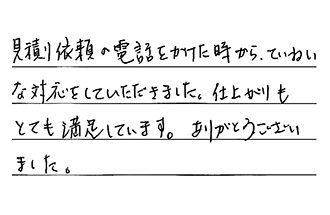 見積り依頼の電話をかけた時から、ていねい
な対応をしていただきました。仕上がりも
とても満足しています。ありがとうござい
ました。